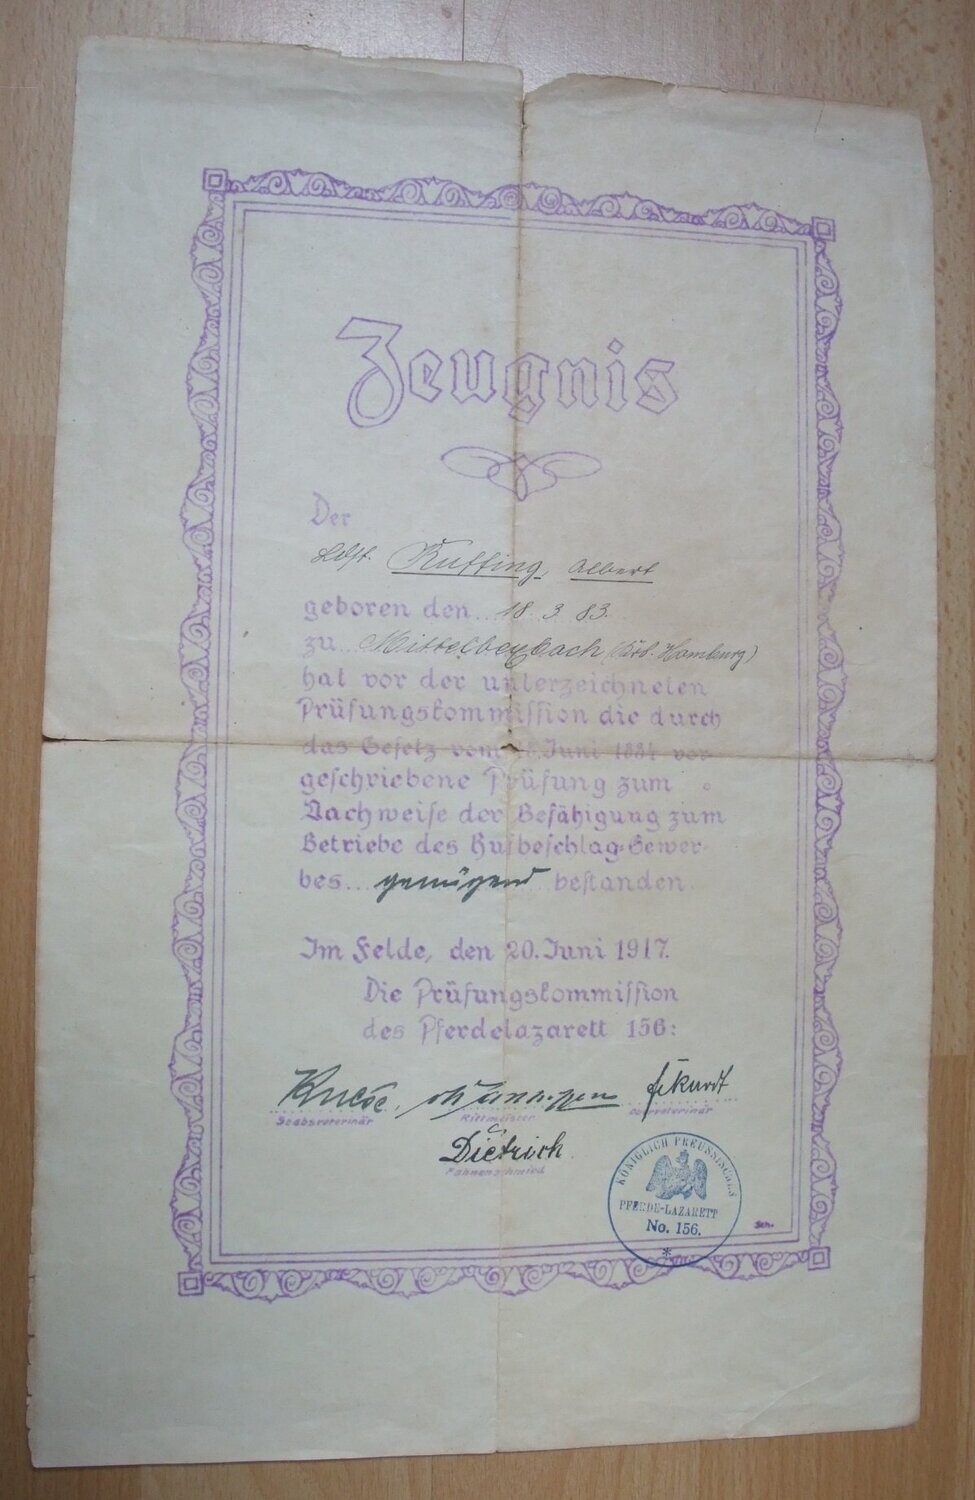 Zeugnis
Der
Ldst. Ruffing, Albert
geboren den 18. 3. 83.
zu Mittelbexbach (Bez. Homburg)
hat vor der unterzeichneten
Prüfungskommission die durch
das Gesetz vom Juni 1884 vor-
geschriebene Prüfung zum
Nachweise der Befähigung zum
Betriebe des Hufbeschlag-Gewer-
bes genügend bestanden.
Im Felde, den 20. Juni 1917.
Die Prüfungskommission
des Pferdelazarett 156:
Kruse.
Stabsveterinär
Rittmeister
Oberveterinär
Dietrich
Fahnenschmied
KÖNIGLICH PREUSSISCHES
PFERDE-LAZARETT
No. 156.
Sch.